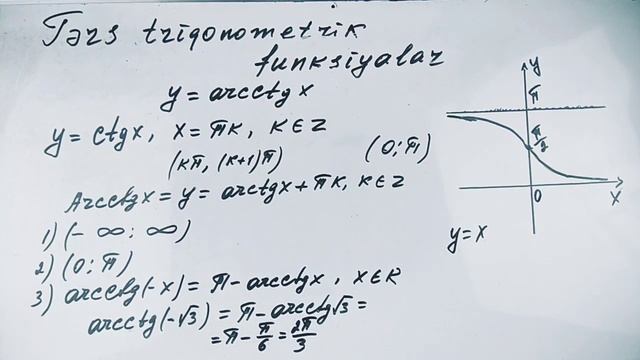 Tərs trigonometrik
funksiyalar
y = arcctgx
y = ctgx, x = πk, k∈Z
(kπ, (k+1)π)
(0; π)
Arcctgx = y = arctgx + πk, k∈Z
1) (-∞; ∞)
2) (0; π)
3) arcctg(-x) = π - arcctgx, x∈R
arcctg(-√3) = π - arcctg√3 =
= π - π/6 = 2π/3
y
π
π/2
0
x
y = x